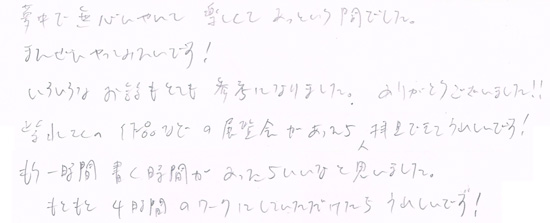 夢中で無心いやいて 楽しくてあっという間でした。
またぜひやってみたいです!
いろいろなお話もとても参考になりました。ありがとうございました!!
の作品などの展覧会があったら拝見できてうれしいです!
もう一時間書く時間があったらいいなと思いました。
もともと4時間のワークにしていただけたらうれしいです!